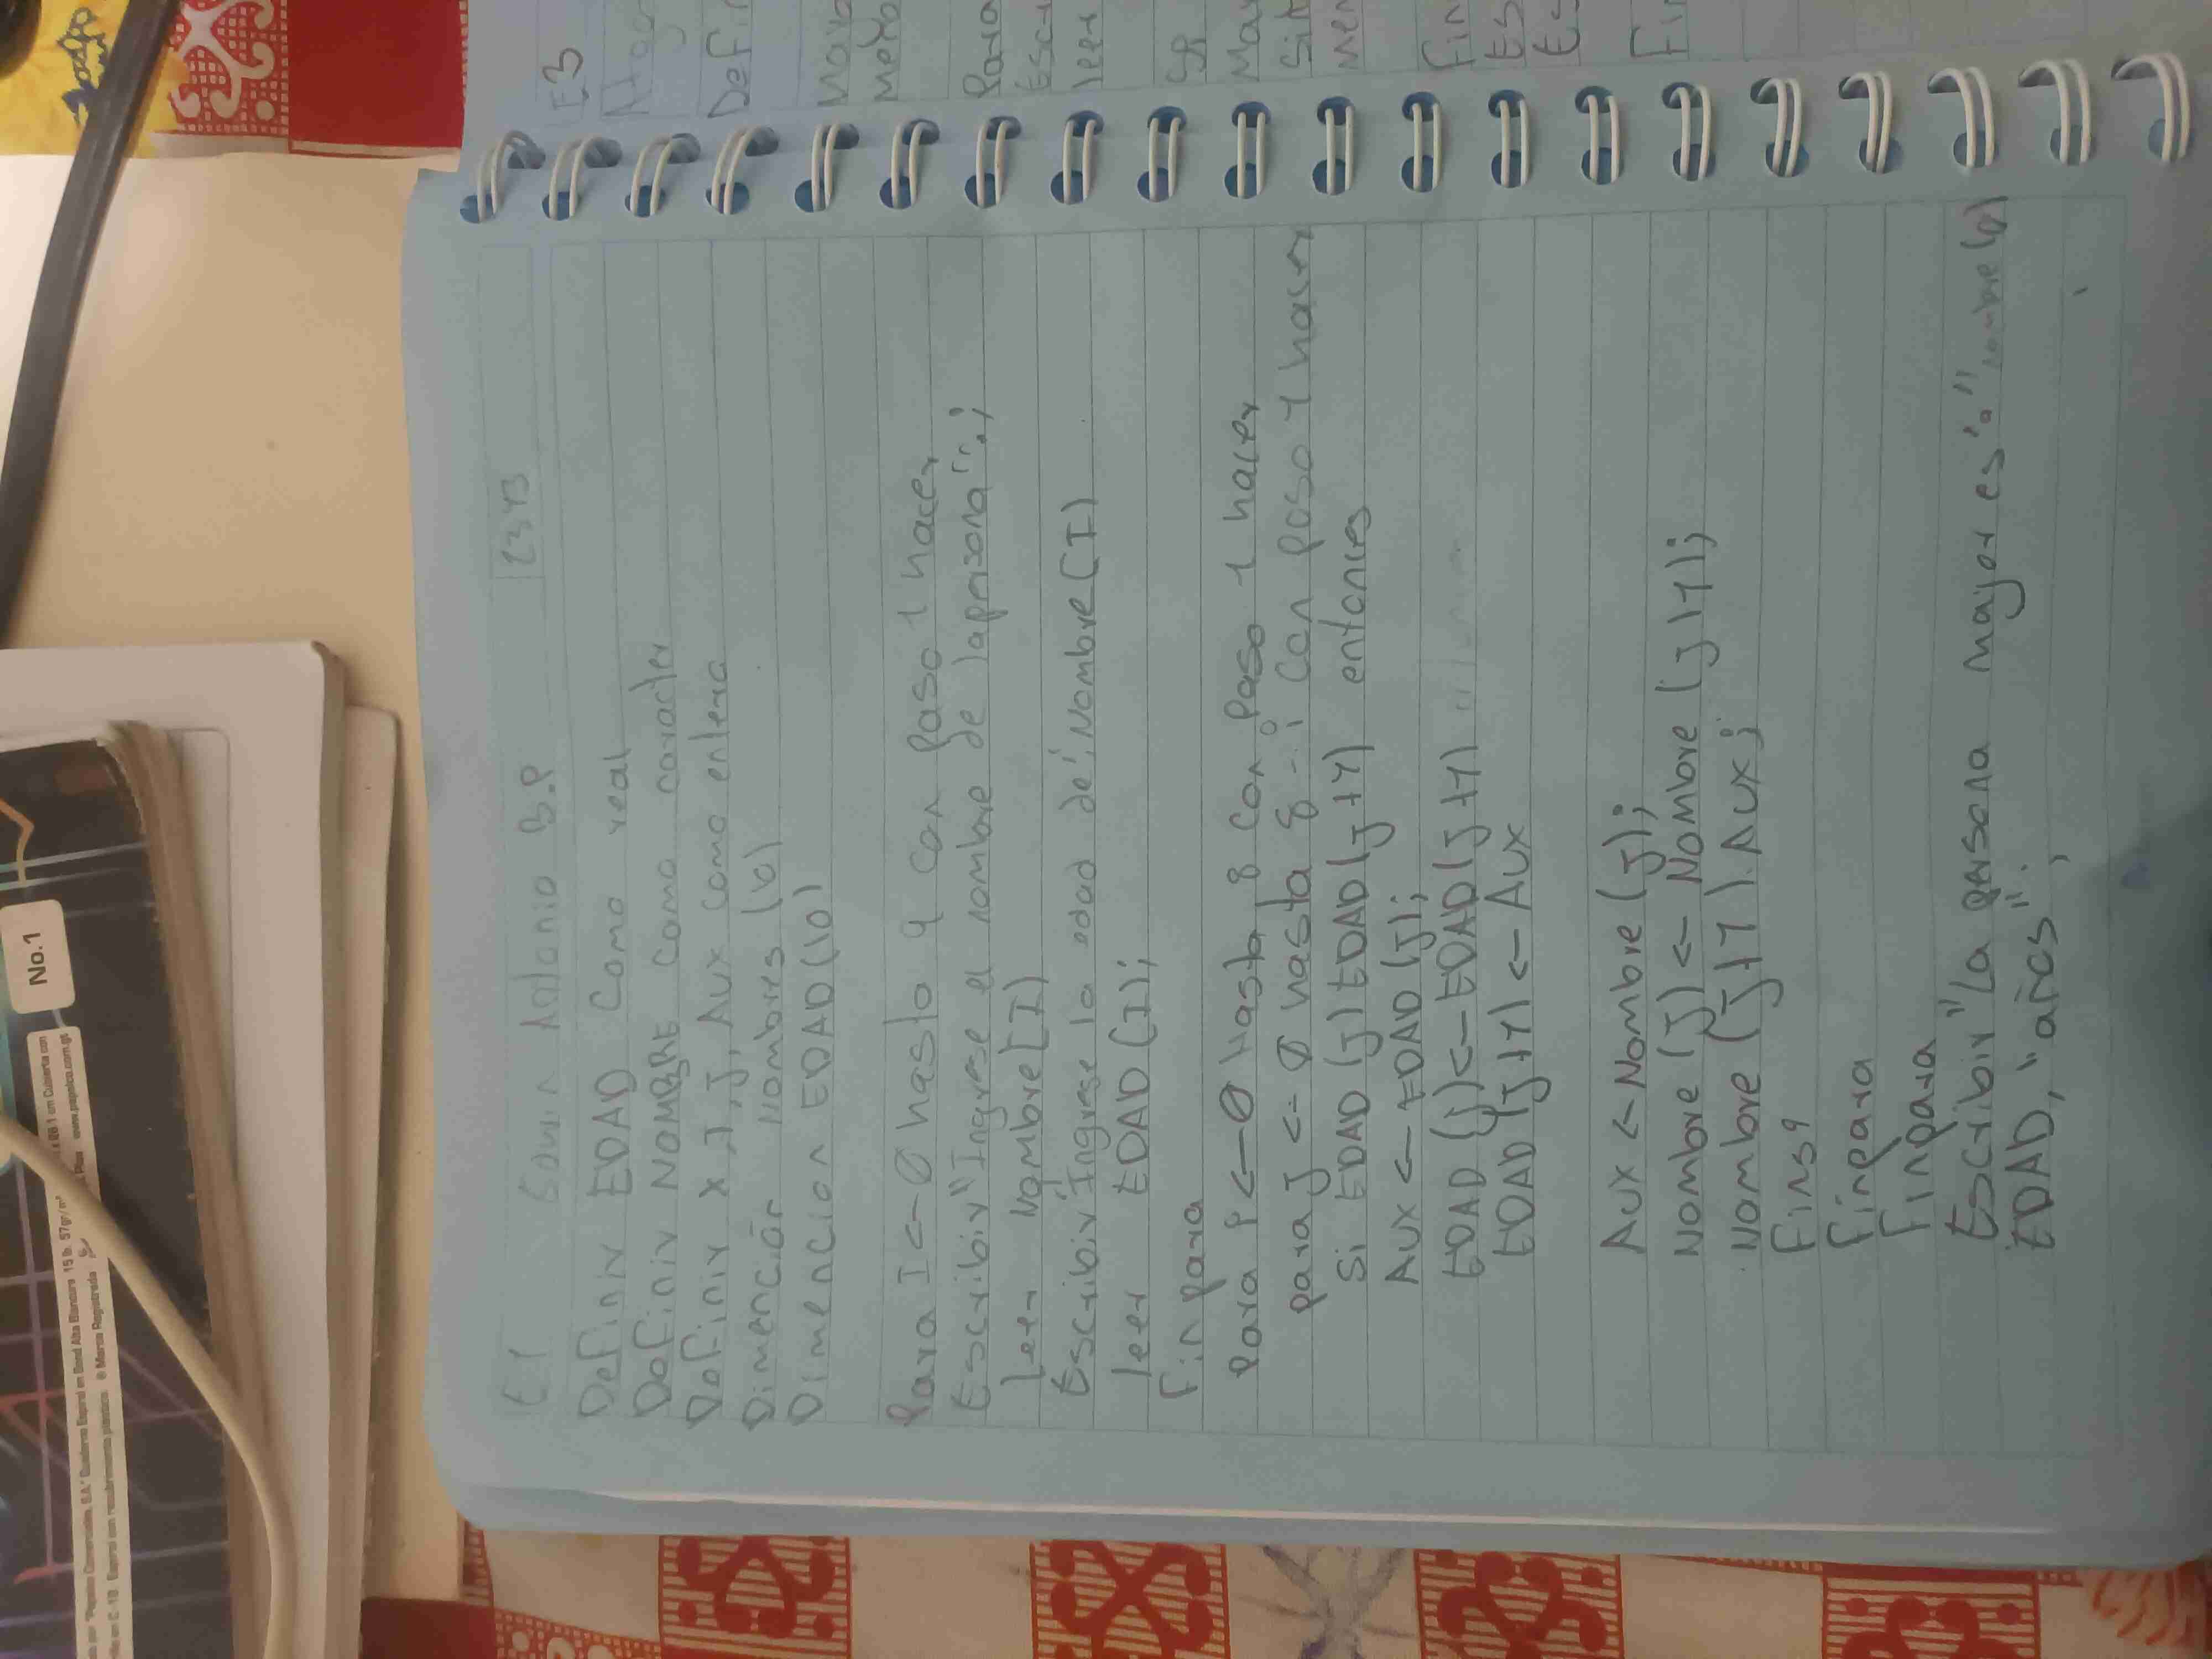 E1 Antonio B.P 1343
Definir EDAD como real
Definir NOMBRE como caracter
Definir x I, J, Aux como entero
Dimención Nombres (10)
Dimencion EDAD (10)
Para I <- 0 hasta 9 con paso 1 hacer
Escribir "Ingrese el nombre de la persona";
Leer Nombre [I]
Escribir "Ingrese la edad de", Nombre (I)
leer EDAD (I);
Fin para
Para P <- 0 Hasta 8 con Paso 1 hacer
para J <- 0 hasta 8 - i con paso 1 hacer
Si EDAD (J) EDAD (J +1) entonces
Aux <- EDAD (J);
EDAD (J) <- EDAD (J +1)
EDAD (J+1) <- Aux
Aux <- Nombre (J);
Nombre (J) <- Nombre (J +1);
Nombre (J+1) Aux;
Finsi
Finpara
Finpara
Escribir "La persona mayor es:" nombre
EDAD, "años".
E3
Defin
Para
Escr
leer
Sit
Fin
Es
Es
Fin
No.1
www.papelco.com.gt
® Marca Registrada